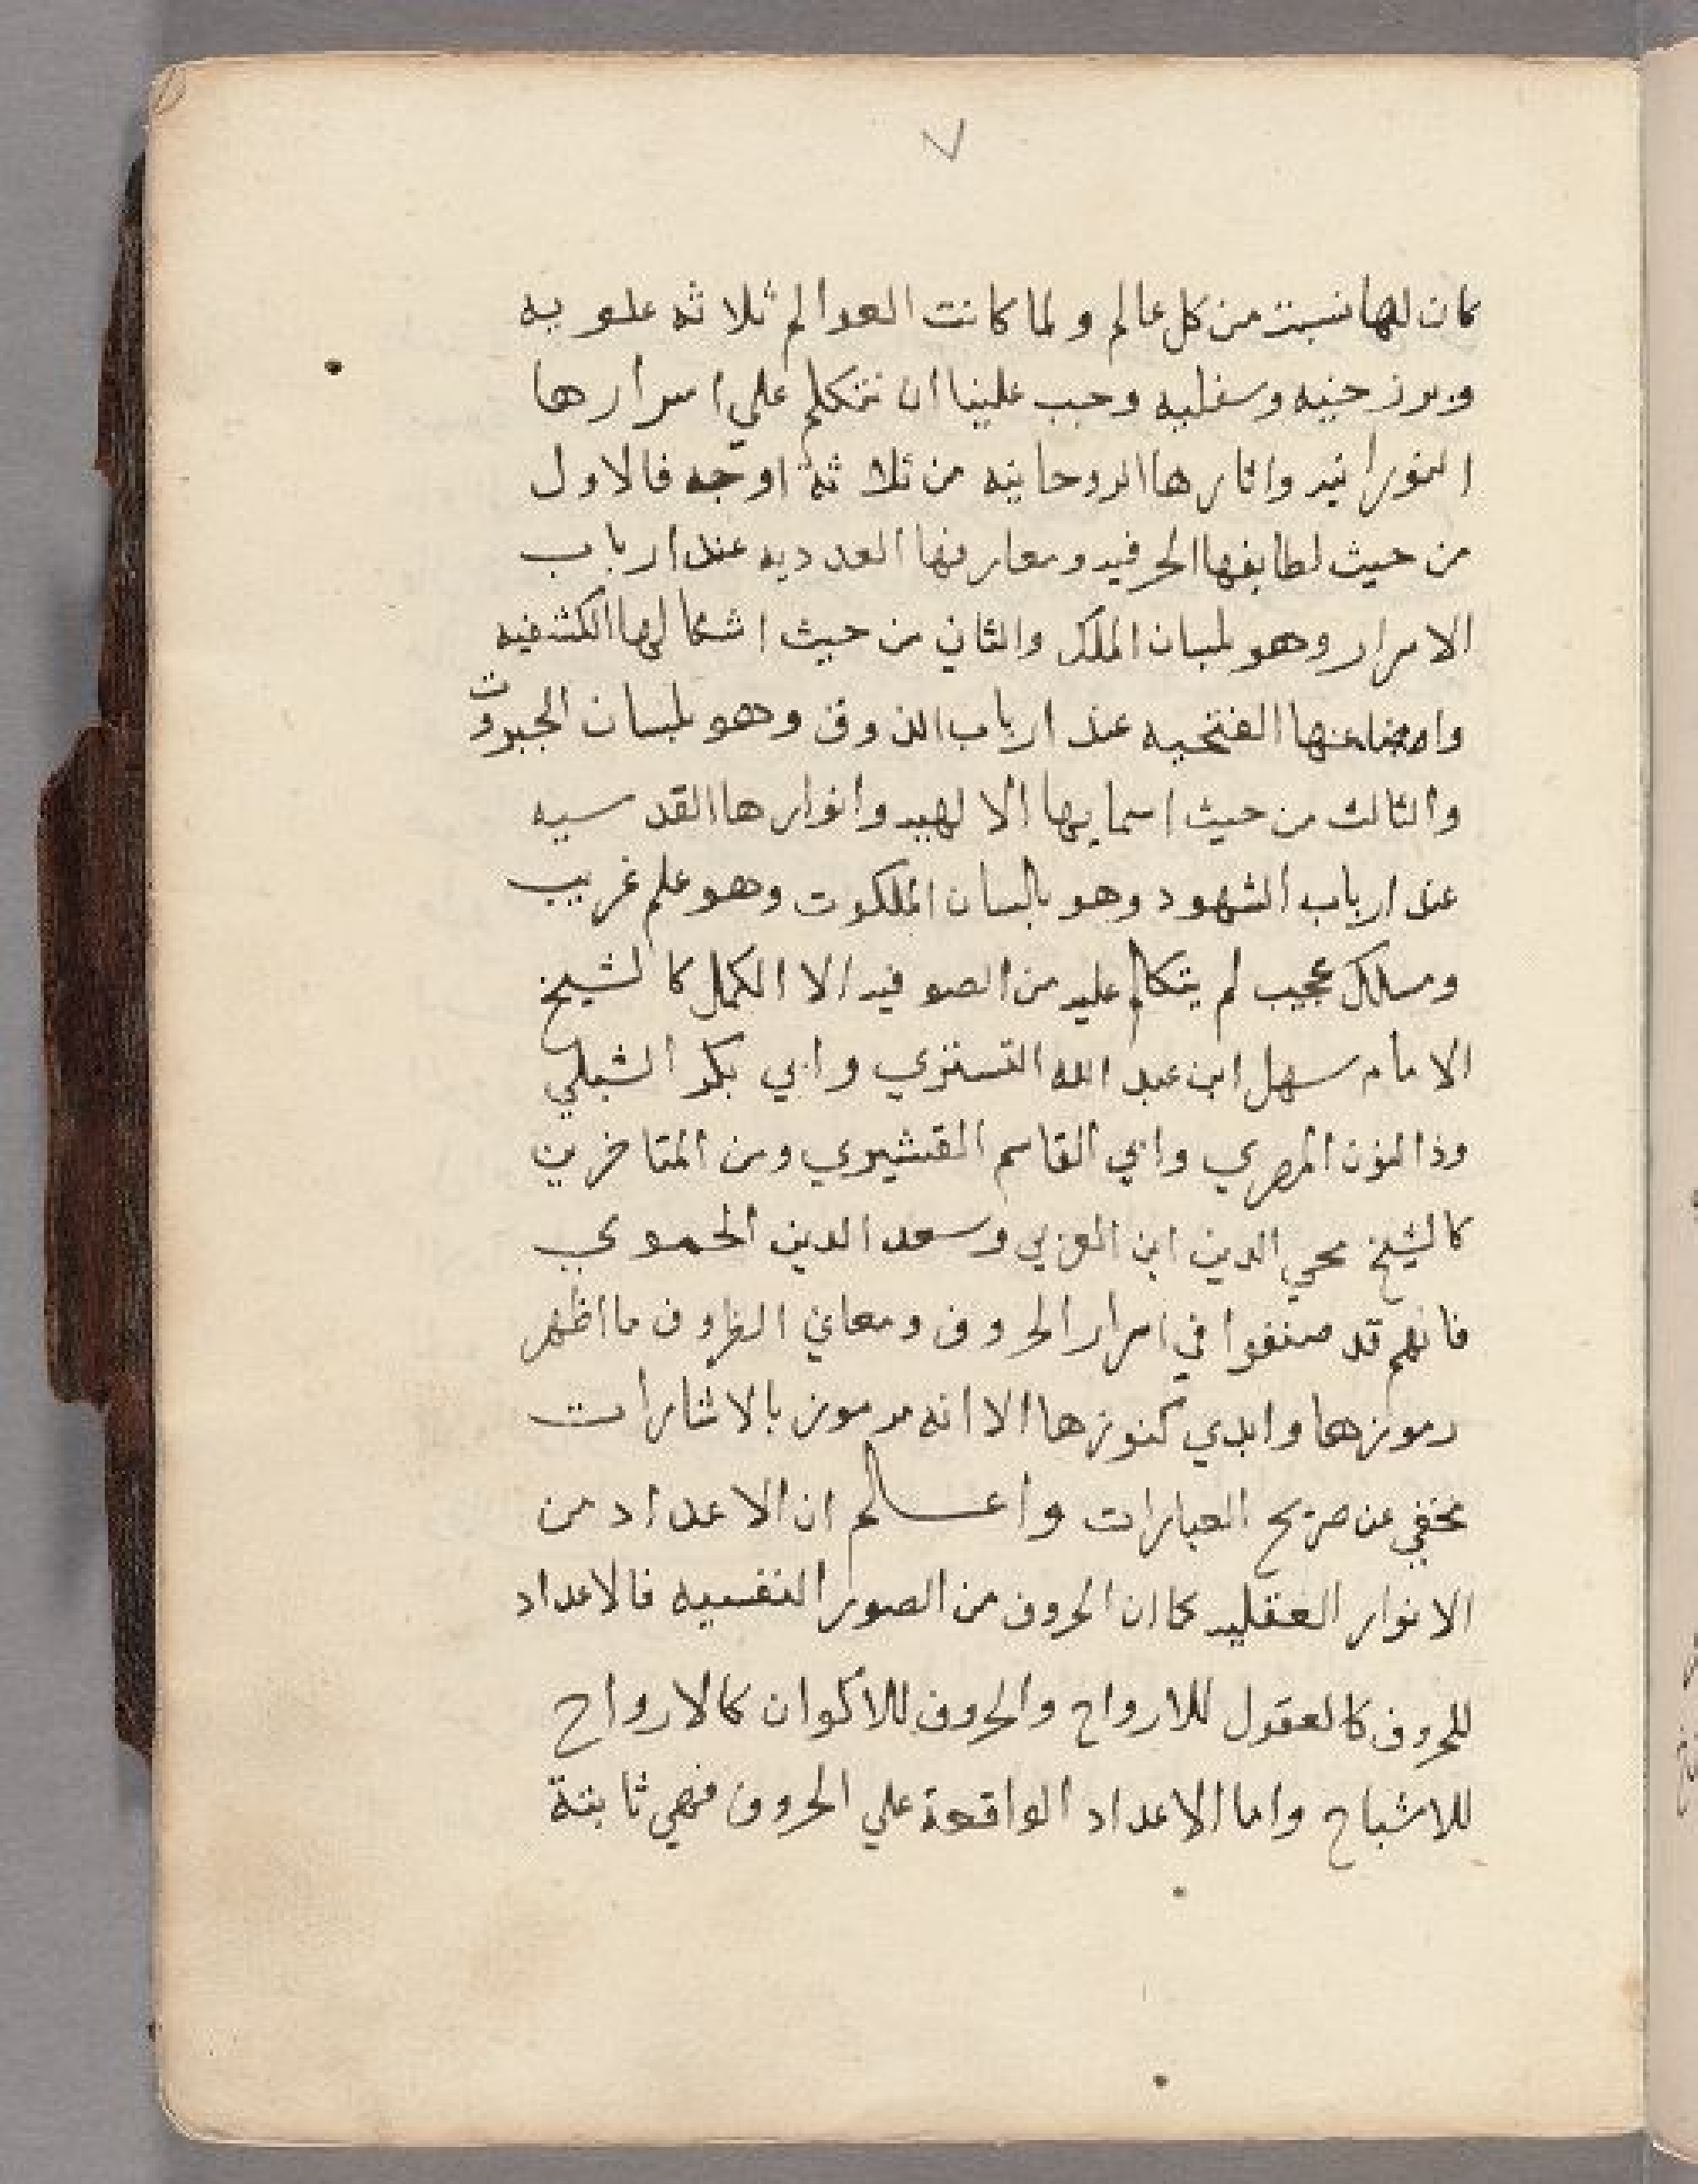 ٧
كان لها نسبة من كل عالم ولما كانت العوالم ثلاثه علويه
وبرزخيه وسفليه وجب علينا ان نتكلم علي اسرارها
النورانيه واثارها الروحانيه من ثلاثة اوجه فالاول
من حيث لطايفها الحرفيه ومعارفها العدديه عند ارباب
الاسرار وهو لسان الملك والثاني من حيث اشكالها الكشفيه
واوضاعها الفتحيه عند ارباب الذوق وهو لسان الجبروت
والثالث من حيث اسمايها الالهيه وانوارها القدسيه
عند ارباب الشهود وهو بالسان الملكوت وهو علم غريب
ومسلك عجيب لم يتكلم عليه من الصوفيه الا الكمل كالشيخ
الامام سهل ابن عبد الله التستري وابي بكر الشبلي
وذا النون المصري وابي القاسم القشيري ومن المتاخرين
كالشيخ محي الدين ابن العربي وسعد الدين الحموي
فانهم قد صنفوا في اسرار الحروف ومعاني الظروف ما اظهر
رموزها وابدي كنوزها الا انه مرموز بالاشارات
مخفي عن صريح العبارات واعلم ان الاعداد من
الانوار العقليه كما ان الحروف من الصور النفسيه فالاعداد
للحروف كالعقول للارواح والحروف للاكوان كالارواح
للاشباح واما الاعداد الواقعة علي الحروف فهي ثابتة